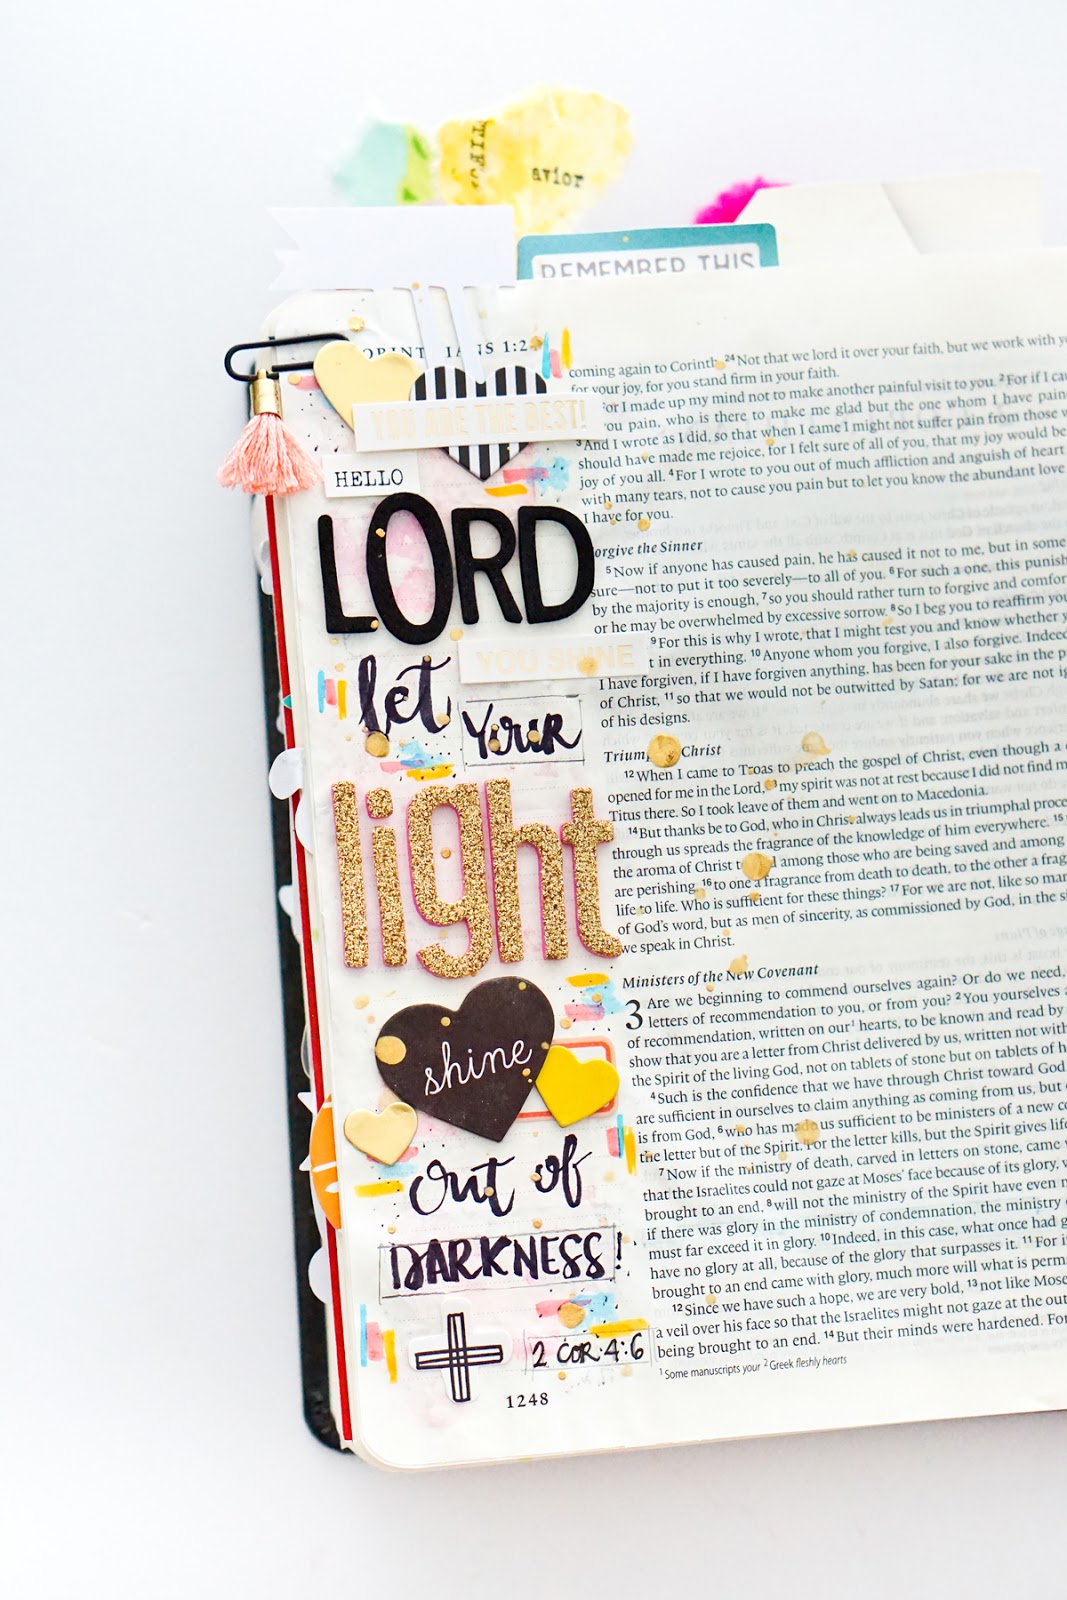 avior
REMEMBER THIS
CORINTHIANS 1:2
YOU ARE THE BEST!
HELLO
LORD
YOU SHINE
let YOUR
light
shine
out of
DARKNESS!
2 COR. 4:6
1248
coming again to Corinth. 24 Not that we lord it over your faith, but we work with
for your joy, for you stand firm in your faith.
For I made up my mind not to make another painful visit to you. 2 For if I
you pain, who is there to make me glad but the one whom I have
3 And I wrote as I did, so that when I came I might not suffer pain from those
should have made me rejoice, for I felt sure of all of you, that my joy would be
joy of you all. 4 For I wrote to you out of much affliction and anguish of heart
with many tears, not to cause you pain but to let you know the abundant love
I have for you.
orgive the Sinner
5 Now if anyone has caused pain, he has caused it not to me, but in some
sure—not to put it too severely—to all of you. 6 For such a one, this
by the majority is enough, 7 so you should rather turn to forgive and
or he may be overwhelmed by excessive sorrow. 8 So I beg you to reaffirm
9 For this is why I wrote, that I might test you and know whether
t in everything. 10 Anyone whom you forgive, I also forgive.
I have forgiven, if I have forgiven anything, has been for your sake in the
of Christ, 11 so that we would not be outwitted by Satan; for we are not
of his designs.
Trium Christ
12 When I came to Troas to preach the gospel of Christ, even though a
opened for me in the Lord, 13 my spirit was not at rest because I did not find
Titus there. So I took leave of them and went on to Macedonia.
14 But thanks be to God, who in Christ always leads us in triumphal
through us spreads the fragrance of the knowledge of him everywhere. 15
the aroma of Christ to God among those who are being saved and among
are perishing, 16 to one a fragrance from death to death, to the other a
life to life. Who is sufficient for these things? 17 For we are not, like so
of God's word, but as men of sincerity, as commissioned by God, in the
we speak in Christ.
Ministers of the New Covenant
3 Are we beginning to commend ourselves again? Or do we need,
letters of recommendation to you, or from you? 2 You yourselves
of recommendation, written on our 1 hearts, to be known and read by
show that you are a letter from Christ delivered by us, written not
the Spirit of the living God, not on tablets of stone but on tablets of
4 Such is the confidence that we have through Christ toward God.
are sufficient in ourselves to claim anything as coming from us, but
is from God, 6 who has made us sufficient to be ministers of a new
the letter but of the Spirit. For the letter kills, but the Spirit gives
7 Now if the ministry of death, carved in letters on stone, came
that the Israelites could not gaze at Moses' face because of its glory,
brought to an end, 8 will not the ministry of the Spirit have even
if there was glory in the ministry of condemnation, the ministry
must far exceed it in glory. 10 Indeed, in this case, what once had
have no glory at all, because of the glory that surpasses it. 11 For
brought to an end came with glory, much more will what is
12 Since we have such a hope, we are very bold, 13 not like
a veil over his face so that the Israelites might not gaze at the
being brought to an end. 14 But their minds were hardened. For
1 Some manuscripts your 2 Greek fleshly hearts